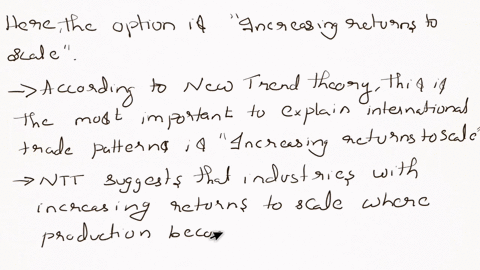 Here, the option is "Increasing returns to
scale".
→ According to New Trend theory, this is
the most important to explain international
trade patterns is "Increasing returns to scale"
→ NTT suggests that industries with
increasing returns to scale where
production beco